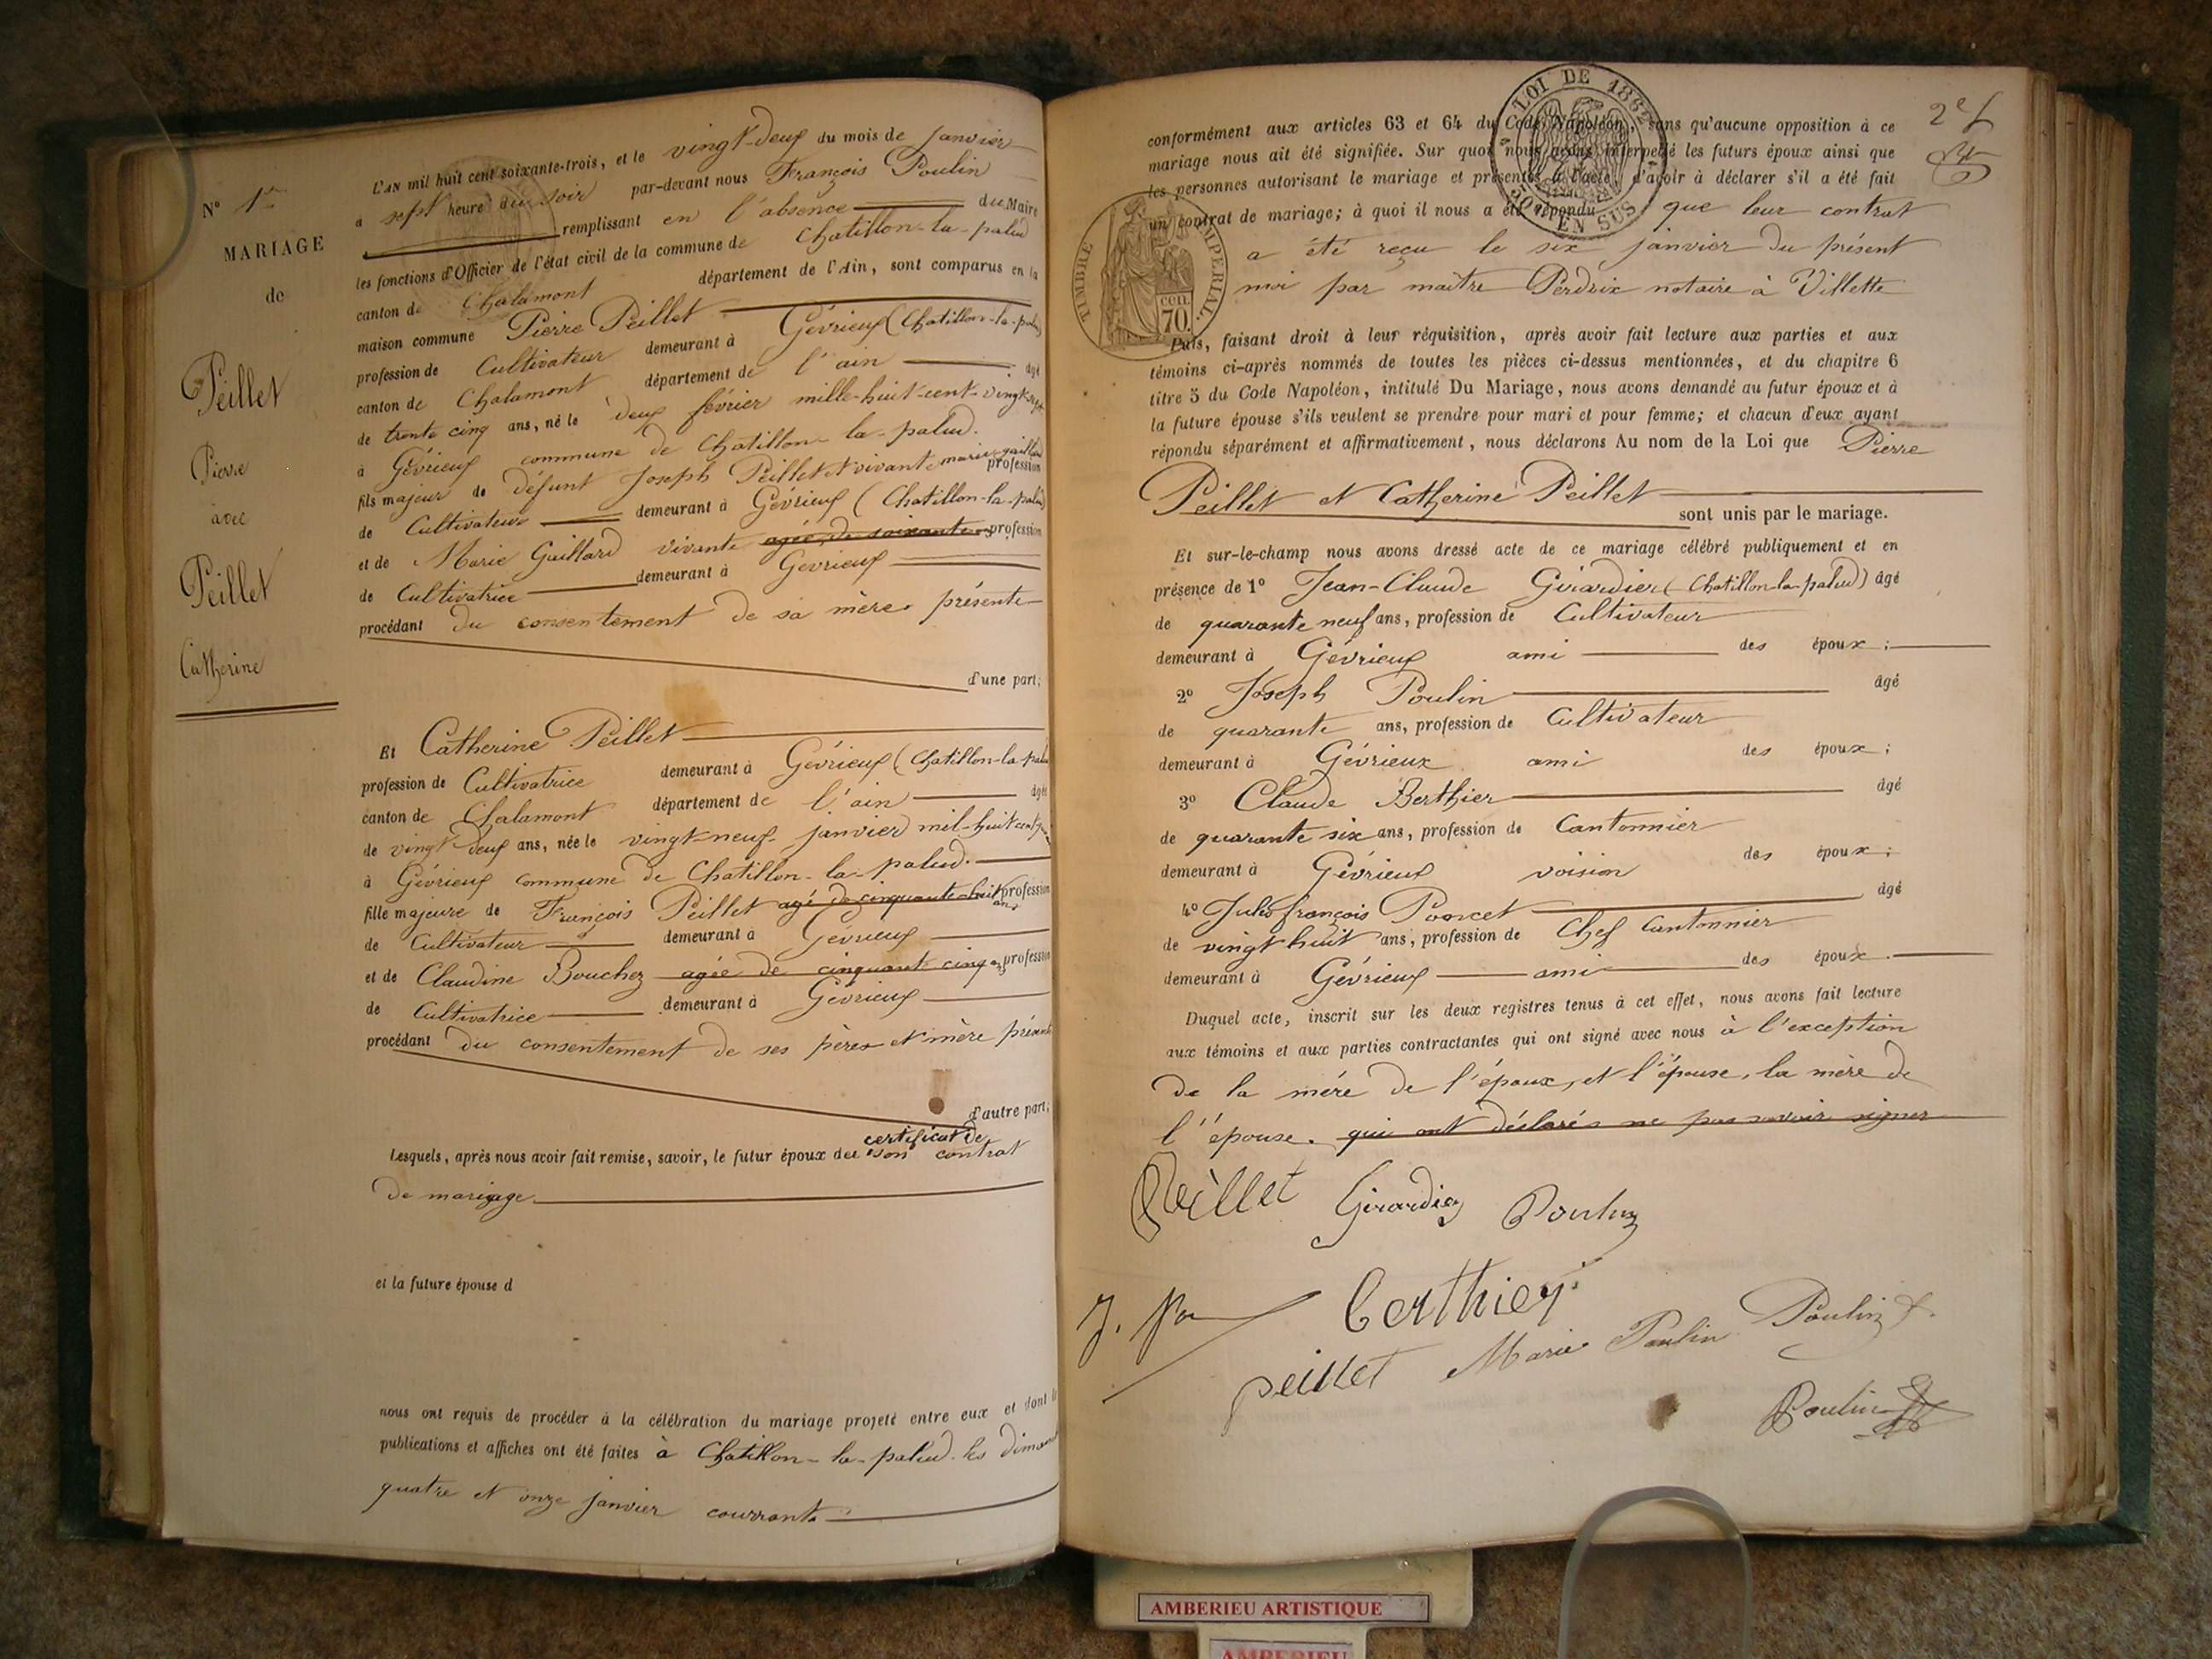 N° 1er
MARIAGE
de
Peillet
Pierre
avec
Peillet
Catherine
L'AN mil huit cent soixante-trois, et le vingt-deux du mois de Janvier
a sept heure du soir par-devant nous François Poulin
remplissant en l'absence du Maire
les fonctions d'Officier de l'état civil de la commune de Chatillon-la-palud
canton de Chalamont département de l'Ain, sont comparus en la
maison commune Pierre Peillet
profession de Cultivateur demeurant à Gévrieux (Chatillon-la-palud
canton de Chalamont département de l'ain âgé
de trente cinq ans, né le deux février mille-huit-cent-vingt-sept
à Gévrieux commune de Chatillon-la-palud.
fils majeur de défunt Joseph Peillet et vivante marie gaillard profession
de Cultivateur demeurant à Gévrieux (Chatillon-la-palud)
et de Marie Guillard vivante agée de soixante profession
de Cultivatrice demeurant à Gevrieux
procédant du consentement de sa mère présente
d'une part;
Et Catherine Peillet
profession de Cultivatrice demeurant à Gévrieux (Chatillon-la-palud
canton de Chalamont département de l'ain âgée
de vingt deux ans, née le vingt-neuf janvier mil-huit cent
à Gévrieux commune de Chatillon-la-palud.
fille majeure de François Peillet agé de cinquante huit ans profession
de Cultivateur demeurant à Gévrieux
et de Claudine Bouchez agée de cinquante cinq profession
de Cultivatrice demeurant à Gévrieux
procédant du consentement de ses père et mère présents
d'autre part;
certificat de
Lesquels, après nous avoir fait remise, savoir, le futur époux de son contrat
de mariage
et la future épouse d
nous ont requis de procéder à la célébration du mariage projeté entre eux et dont les
publications et affiches ont été faites à Chatillon-la-palud les dimanches
quatre et onze janvier courrant
2e f
LOI DE 1862
50 EN SUS
TIMBRE IMPERIAL
cen. 70.
conformément aux articles 63 et 64 du Code Napoléon, sans qu'aucune opposition à ce
mariage nous ait été signifiée. Sur quoi nous avons interpellé les futurs époux ainsi que
les personnes autorisant le mariage et présentes à l'acte, d'avoir à déclarer s'il a été fait
un contrat de mariage; à quoi il nous a été répondu que leur contrat
a été reçu le six janvier du présent
moi par maitre Perdrix notaire à Villette
Puis, faisant droit à leur réquisition, après avoir fait lecture aux parties et aux
témoins ci-après nommés de toutes les pièces ci-dessus mentionnées, et du chapitre 6
titre 5 du Code Napoléon, intitulé Du Mariage, nous avons demandé au futur époux et à
la future épouse s'ils veulent se prendre pour mari et pour femme; et chacun d'eux ayant
répondu séparément et affirmativement, nous déclarons Au nom de la Loi que Pierre
Peillet et Catherine Peillet
sont unis par le mariage.
Et sur-le-champ nous avons dressé acte de ce mariage célébré publiquement et en
présence de 1° Jean-Claude Girardier (Chatillon-la-palud) âgé
de quarante neuf ans, profession de Cultivateur
demeurant à Gévrieux ami des époux;
2° Joseph Poulin âgé
de quarante ans, profession de Cultivateur
demeurant à Gévrieux ami des époux;
3° Claude Berthier âgé
de quarante six ans, profession de Cantonnier
demeurant à Gévrieux voision des époux;
4° Jules françois Poncet âgé
de vingt huit ans, profession de Chef Cantonnier
demeurant à Gévrieux ami des époux.
Duquel acte, inscrit sur les deux registres tenus à cet effet, nous avons fait lecture
aux témoins et aux parties contractantes qui ont signé avec nous à l'exception
de la mère de l'époux, et l'épouse, la mère de
l'épouse. qui ont déclarés ne pas savoir signer
Peillet Girardier Poulin
Berthier
peillet Marie Poulin Poulin f.
Poulin
AMBERIEU ARTISTIQUE
AMBERIEU